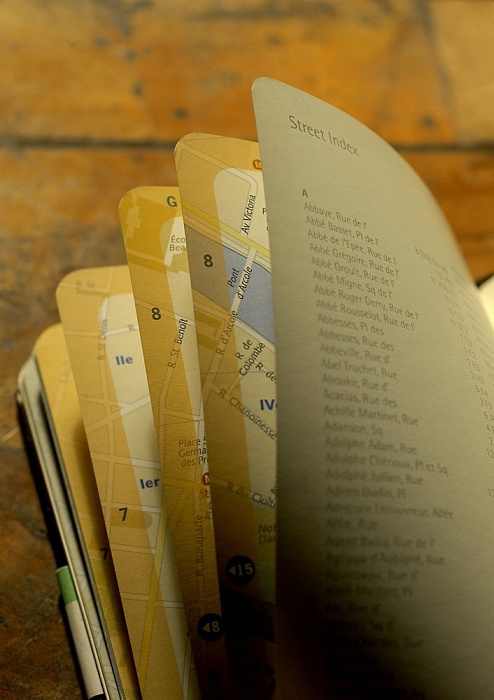 Street Index
A
Abbaye, Rue de l'
Abbé Basset, Pl de l'
Abbé de l'Epée, Rue de l'
Abbé Grégoire, Rue de l'
Abbé Groult, Rue de l'
Abbé Migne, Sq de l'
Abbé Roger Derry, Rue de l'
Abbé Rousselot, Rue de l'
Abbesses, Pl des
Abbesses, Rue des
Abbeville, Rue d'
Abel Truchet, Rue
Aboukir, Rue d'
Acacias, Rue des
Achille Martinet, Rue
Adamson, Sq
Adolphe Adam, Rue
Adolphe Chérioux, Pl et Sq
Adolphe Jullien, Rue
Adrien Oudin, Pl
Adrienne Lecouvreur, Allée
Affre, Rue
Agent Bailly, Rue de l'
Agrippa d'Aubigné, Rue
M
Av Victoria
8
Pont
d'Arcole
R d'Arcole
R de
Colombe
R de
R Chanoinesse
IV
R du Cloît
Not
Dam
◄15
G
Éco
Bea
8
R St Benoît
Place S
Germ
des Pr
M
St
R Bonaparte
◄8
IIe
Ier
7
7